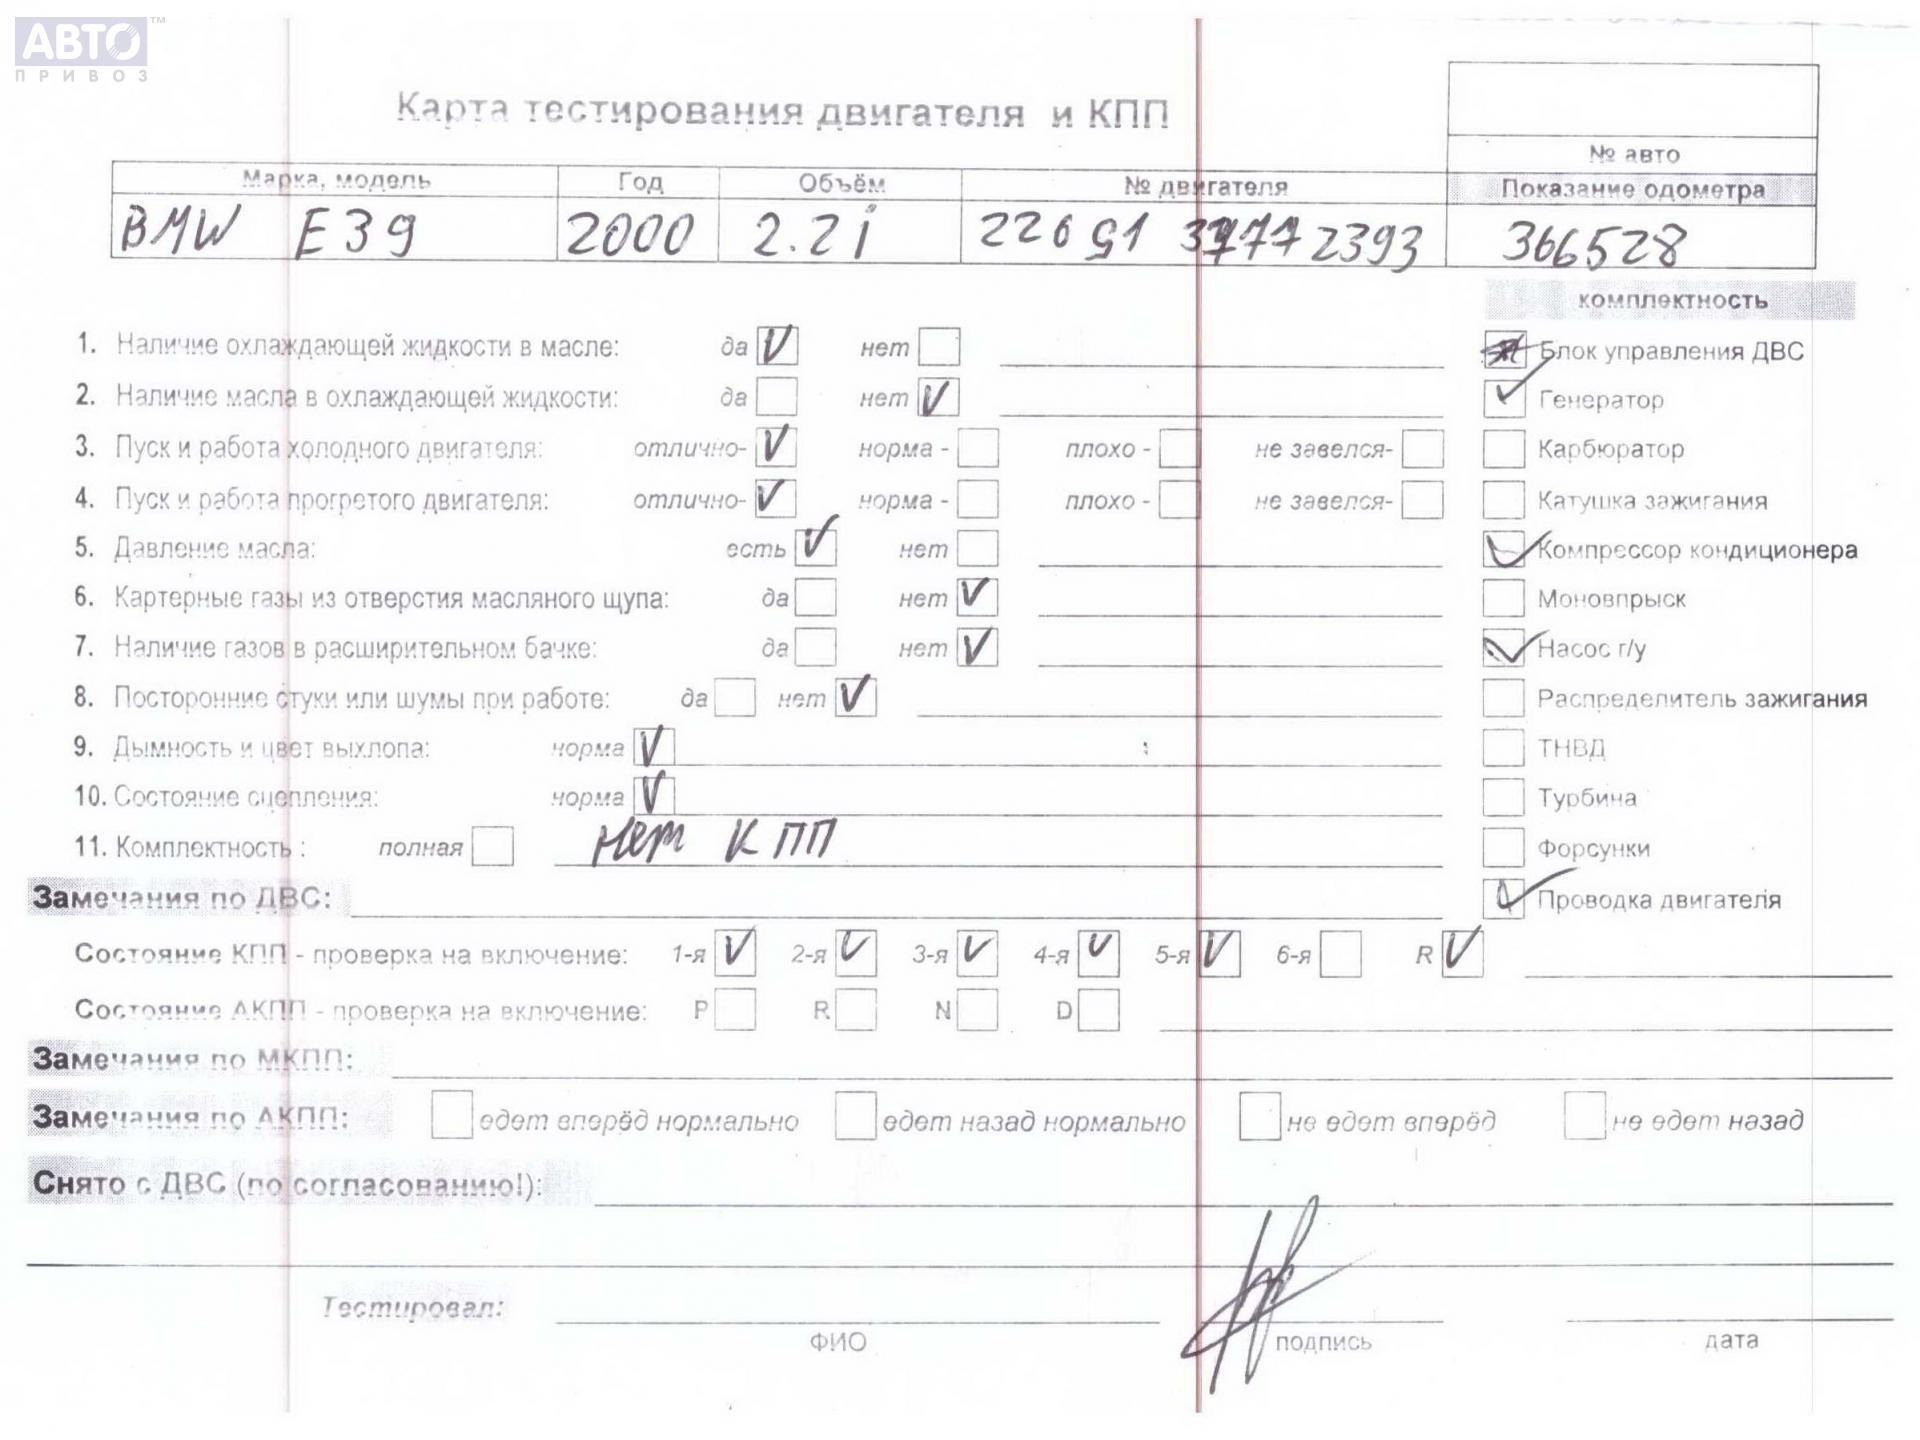 АВТО™
ПРИВОЗ
Карта тестирования двигателя и КПП
№ авто
Марка, модель Год Объём № двигателя Показание одометра
BMW E39 2000 2.2i 226S1 2393 366528
комплектность
1. Наличие охлаждающей жидкости в масле: да V нет Блок управления ДВС
2. Наличие масла в охлаждающей жидкости: да нет V Генератор
3. Пуск и работа холодного двигателя: отлично- V норма - плохо - не завелся- Карбюратор
4. Пуск и работа прогретого двигателя: отлично- V норма - плохо - не завелся- Катушка зажигания
5. Давление масла: есть V нет Компрессор кондиционера
6. Картерные газы из отверстия масляного щупа: да нет V Моновпрыск
7. Наличие газов в расширительном бачке: да нет V Насос г/у
8. Посторонние стуки или шумы при работе: да нет V Распределитель зажигания
9. Дымность и цвет выхлопа: норма V ТНВД
10. Состояние сцепления: норма V Турбина
11. Комплектность : полная нет КПП Форсунки
Замечания по ДВС: Проводка двигателя
Состояние КПП - проверка на включение: 1-я V 2-я V 3-я V 4-я V 5-я V 6-я R V
Состояние АКПП - проверка на включение: P R N D
Замечания по МКПП:
Замечания по АКПП: едет вперёд нормально едет назад нормально не едет вперёд не едет назад
Снято с ДВС (по согласованию!):
Тестировал:
ФИО подпись дата